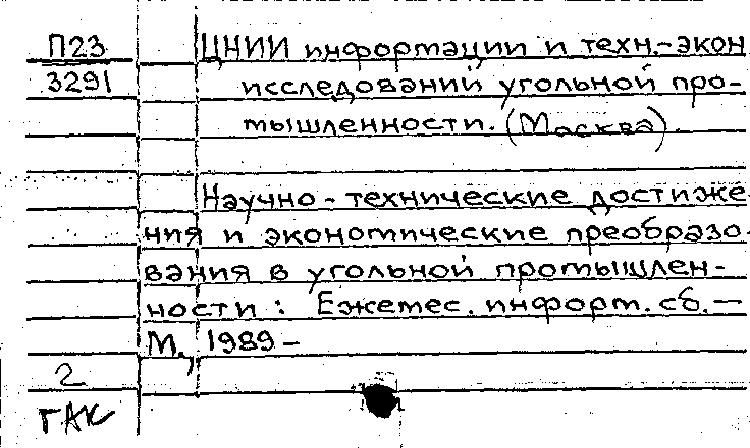 П23
3291
ЦНИИ информации и техн.-экон
исследований угольной про-
мышленности. (Москва).
Научно-технические достиже
ния и экономические преобразо
вания в угольной промышлен-
ности: Ежемес. информ. сб. —
М., 1989 —
2
ГАК